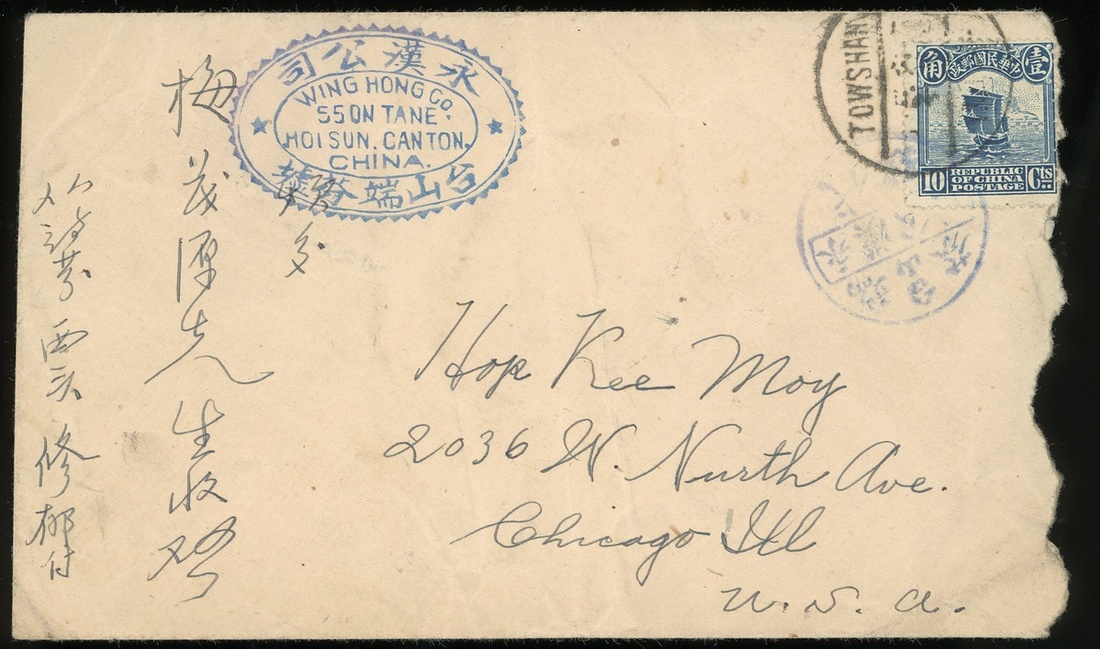 永漢公司
WING HONG CO.
55 ON TANE
HOI SUN. CANTON.
CHINA.
台山端芬
TOWSHAN
中華民國郵政
壹
角
10 REPUBLIC OF CHINA POSTAGE Cts
Hop Kee Moy
2036 W. Nurth Ave.
Chicago Ill
U. S. A.
梅茂厚先生收啓
端芬西頭修郁付